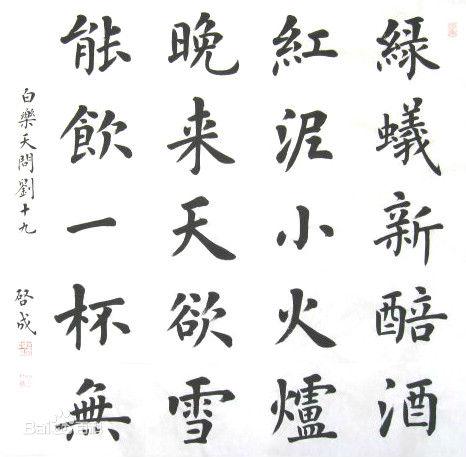 綠蟻新醅酒
紅泥小火爐
晚来天欲雪
能飲一杯無
白樂天問劉十九
啓成
Bai